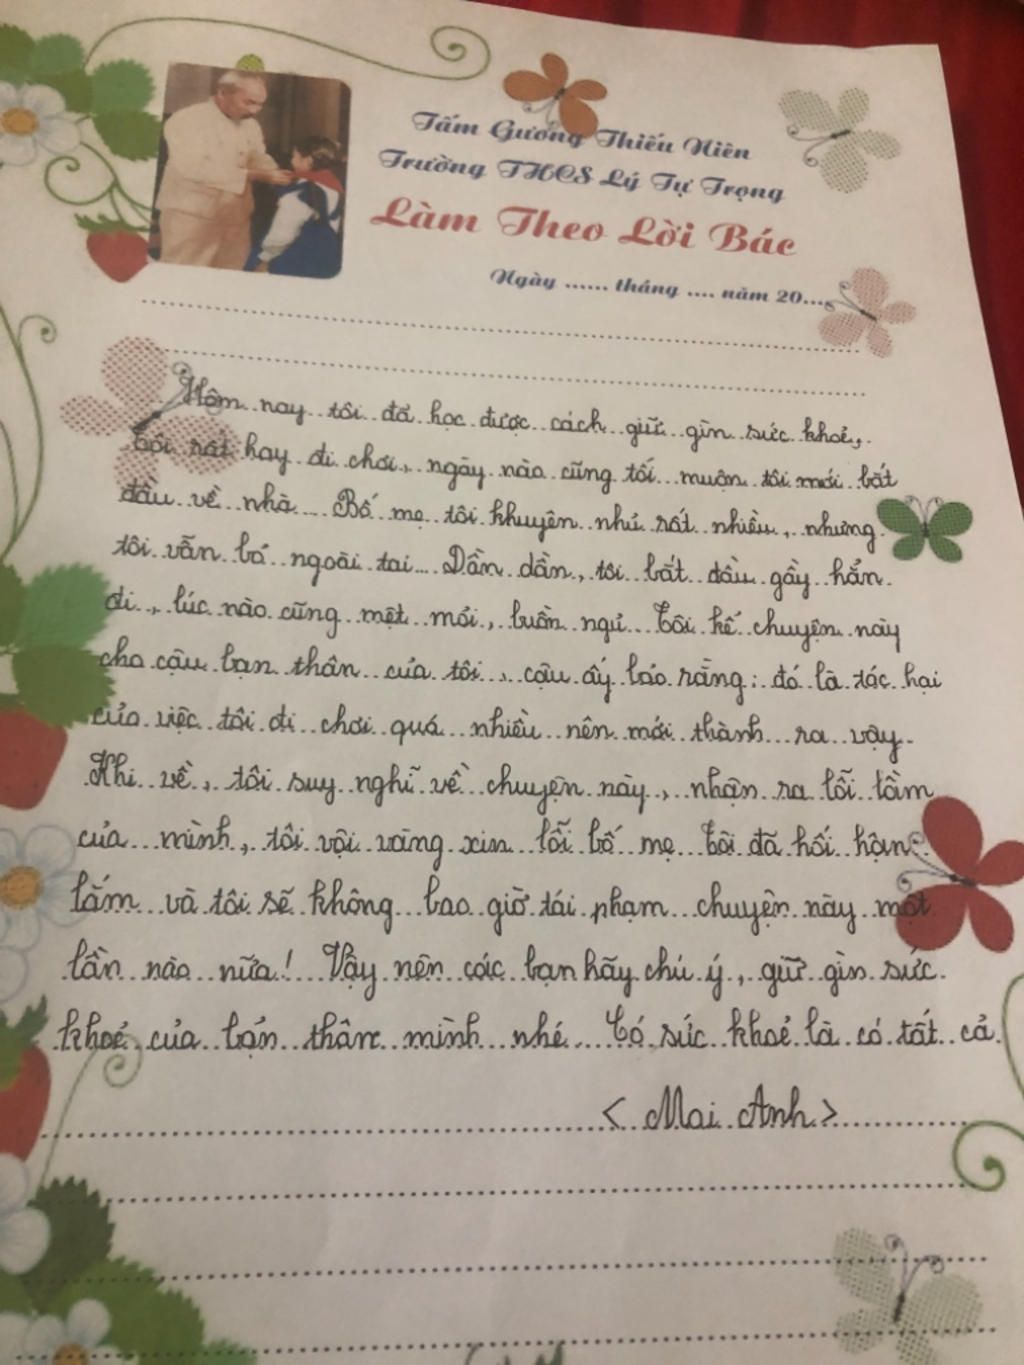 Tấm Gương Thiếu Niên
Trường THCS Lý Tự Trọng
Làm Theo Lời Bác
Ngày ...... tháng .... năm 20....
Hôm nay tôi đã học được cách giữ gìn sức khoẻ,
tôi rất hay đi chơi, ngày nào cũng tối muộn tôi mới bắt
đầu về nhà. Bố mẹ tôi khuyên nhủ rất nhiều, nhưng
tôi vẫn bỏ ngoài tai. Dần dần, tôi bắt đầu gầy hẳn
đi, lúc nào cũng mệt mỏi, buồn ngủ. Tôi kể chuyện này
cho cậu bạn thân của tôi, cậu ấy bảo rằng: đó là tác hại
của việc tôi đi chơi quá nhiều nên mới thành ra vậy.
Khi về, tôi suy nghĩ về chuyện này, nhận ra lỗi lầm
của mình, tôi vội vàng xin lỗi bố mẹ. Tôi đã hối hận
lắm và tôi sẽ không bao giờ tái phạm chuyện này một
lần nào nữa! Vậy nên các bạn hãy chú ý, giữ gìn sức
khoẻ của bản thân mình nhé. Có sức khoẻ là có tất cả.
< Mai Anh >